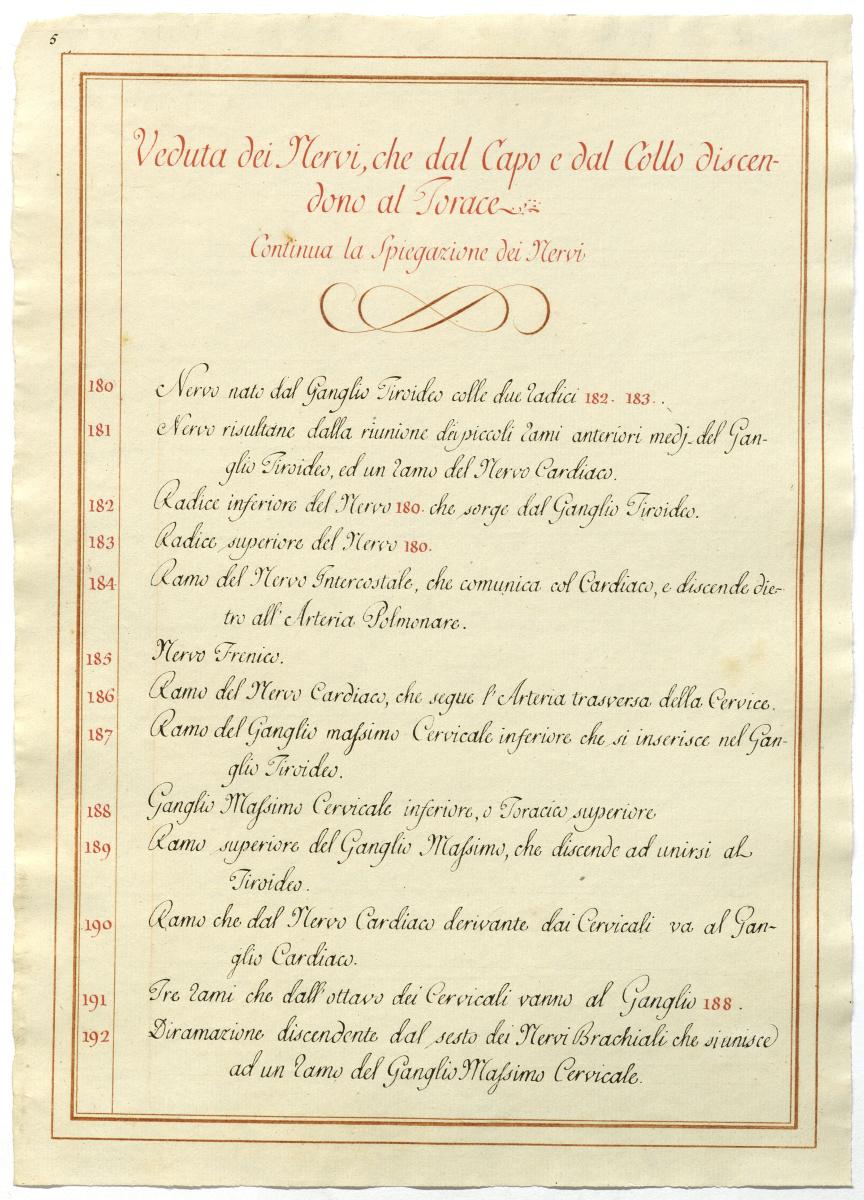 5
Veduta dei Nervi, che dal Capo e dal Collo discen-
dono al Torace
Continua la Spiegazione dei Nervi
180 Nervo nato dal Ganglio Tiroideo colle due radici 182. 183..
181 Nervo risultane dalla riunione dei piccoli rami anteriori medj del Gan-
glio Tiroideo, ed un ramo del Nervo Cardiaco.
182 Radice inferiore del Nervo 180. che sorge dal Ganglio Tiroideo.
183 Radice superiore del Nervo 180.
184 Ramo del Nervo Intercostale, che comunica col Cardiaco, e discende die-
tro all'Arteria Polmonare.
185 Nervo Frenico.
186 Ramo del Nervo Cardiaco, che segue l'Arteria trasversa della Cervice.
187 Ramo del Ganglio maſsimo Cervicale inferiore che si inserisce nel Gan-
glio Tiroideo.
188 Ganglio Maſsimo Cervicale inferiore, o Toracico superiore
189 Ramo superiore del Ganglio Maſsimo, che discende ad unirsi al
Tiroideo.
190 Ramo che dal Nervo Cardiaco derivante dai Cervicali va al Gan-
glio Cardiaco.
191 Tre rami che dall'ottavo dei Cervicali vanno al Ganglio 188.
192 Diramazione discendente dal sesto dei Nervi Brachiali che si unisce
ad un ramo del Ganglio Maſsimo Cervicale.